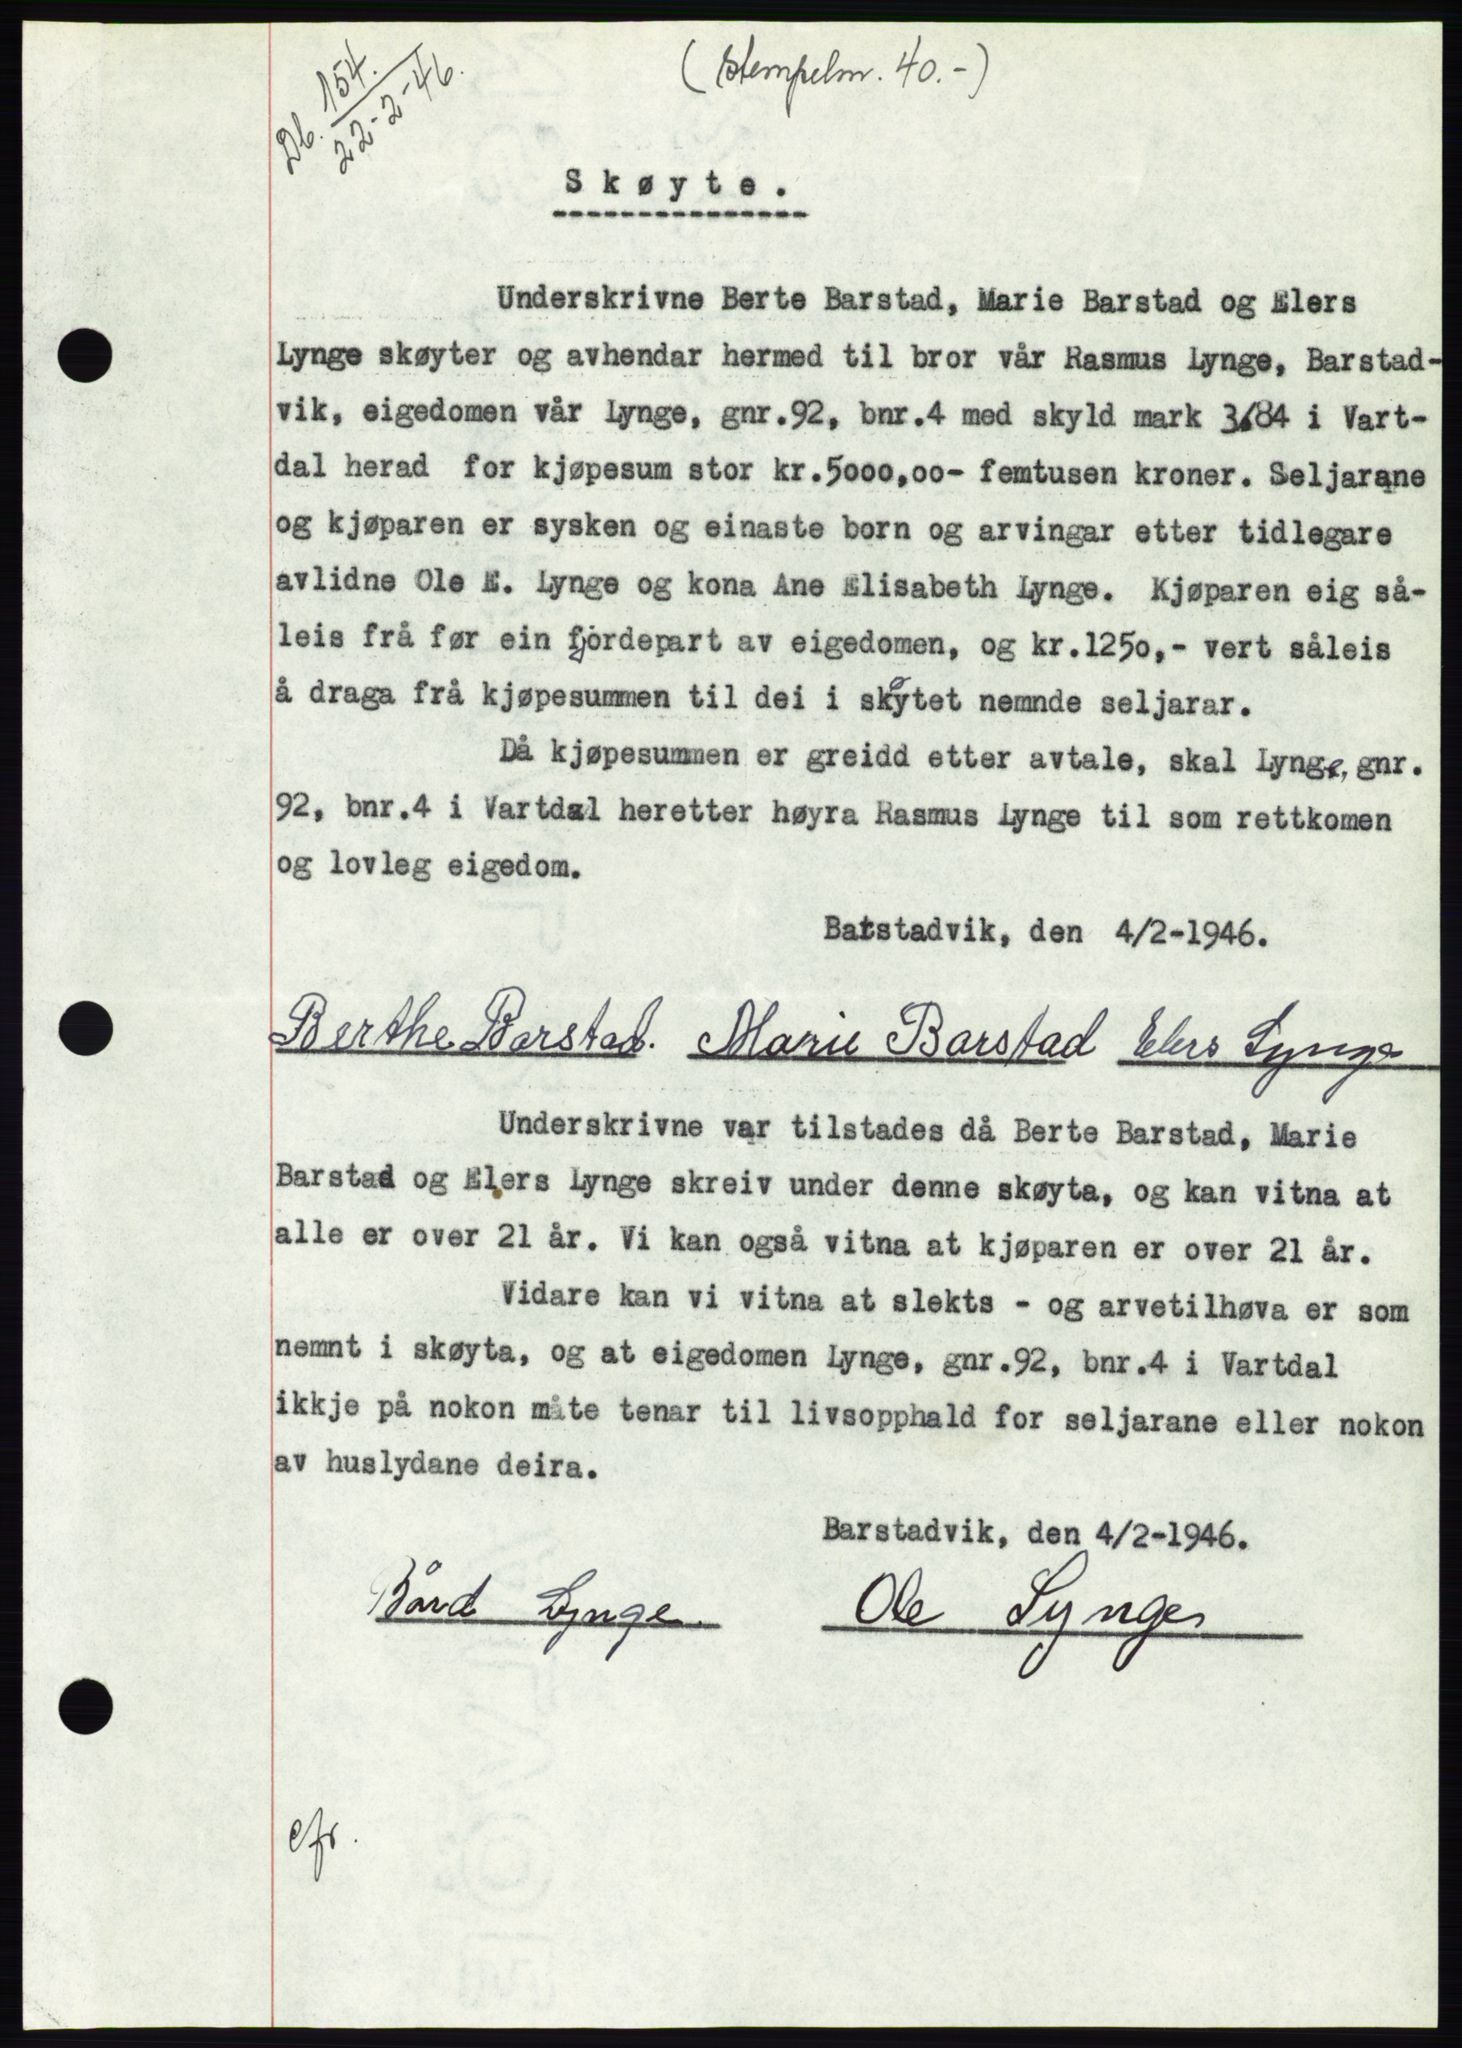 Db. 154.
22-2-46.
(Stempelm. 40.-)
Skøyte.
Underskrivne Berte Barstad, Marie Barstad og Elers
Lynge skøyter og avhendar hermed til bror vår Rasmus Lynge, Barstad-
vik, eigedomen vår Lynge, gnr.92, bnr.4 med skyld mark 3.84 i Vart-
dal herad for kjøpesum stor kr.5000,00- femtusen kroner. Seljarane
og kjøparen er sysken og einaste born og arvingar etter tidlegare
avlidne Ole E. Lynge og kona Ane Elisabeth Lynge. Kjøparen eig så-
leis frå før ein fjordepart av eigedomen, og kr.1250,- vert såleis
å draga frå kjøpesummen til dei i skøytet nemnde seljarar.
Då kjøpesummen er greidd etter avtale, skal Lynge, gnr.
92, bnr.4 i Vartdal heretter høyra Rasmus Lynge til som rettkomen
og lovleg eigedom.
Barstadvik, den 4/2-1946.
Berthe Barstad. Marie Barstad Elers Lynge
Underskrivne var tilstades då Berte Barstad, Marie
Barstad og Elers Lynge skreiv under denne skøyta, og kan vitna at
alle er over 21 år. Vi kan også vitna at kjøparen er over 21 år.
Vidare kan vi vitna at slekts - og arvetilhøva er som
nemnt i skøyta, og at eigedomen Lynge, gnr.92, bnr.4 i Vartdal
ikkje på nokon måte tenar til livsopphald for seljarane eller nokon
av huslydane deira.
Barstadvik, den 4/2-1946.
Bård Lynge. Ole Lynge
cfr.